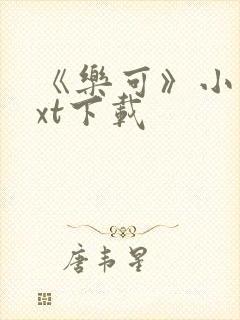 《樂可》小
xt下載
唐韦星